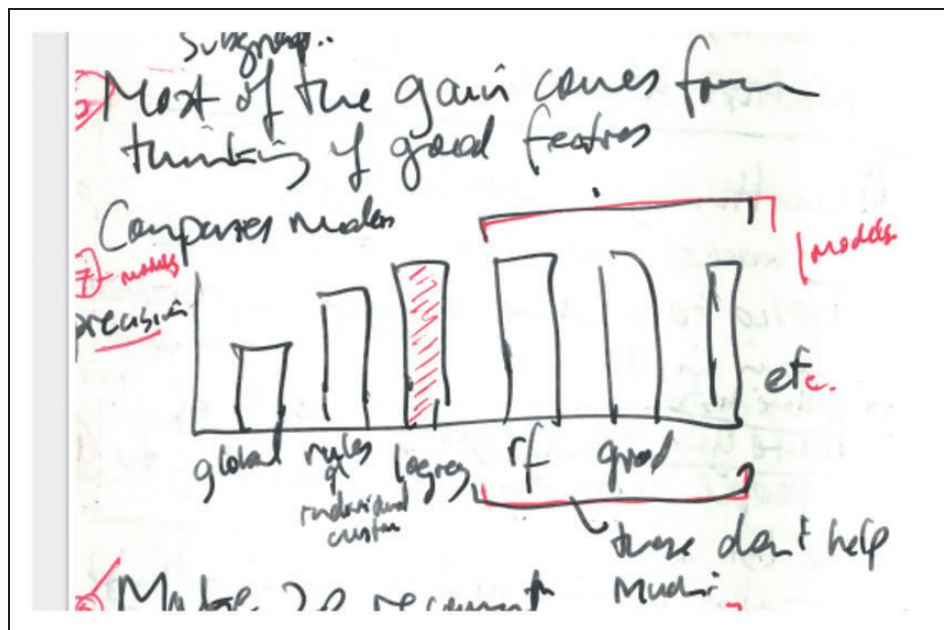 Subgroup..
Most of the gain comes from
thinking of good features
Compares models
models
7
precision
models
etc.
global
rules
of
individual
custom
logreg
rf
grad
these don't help
much